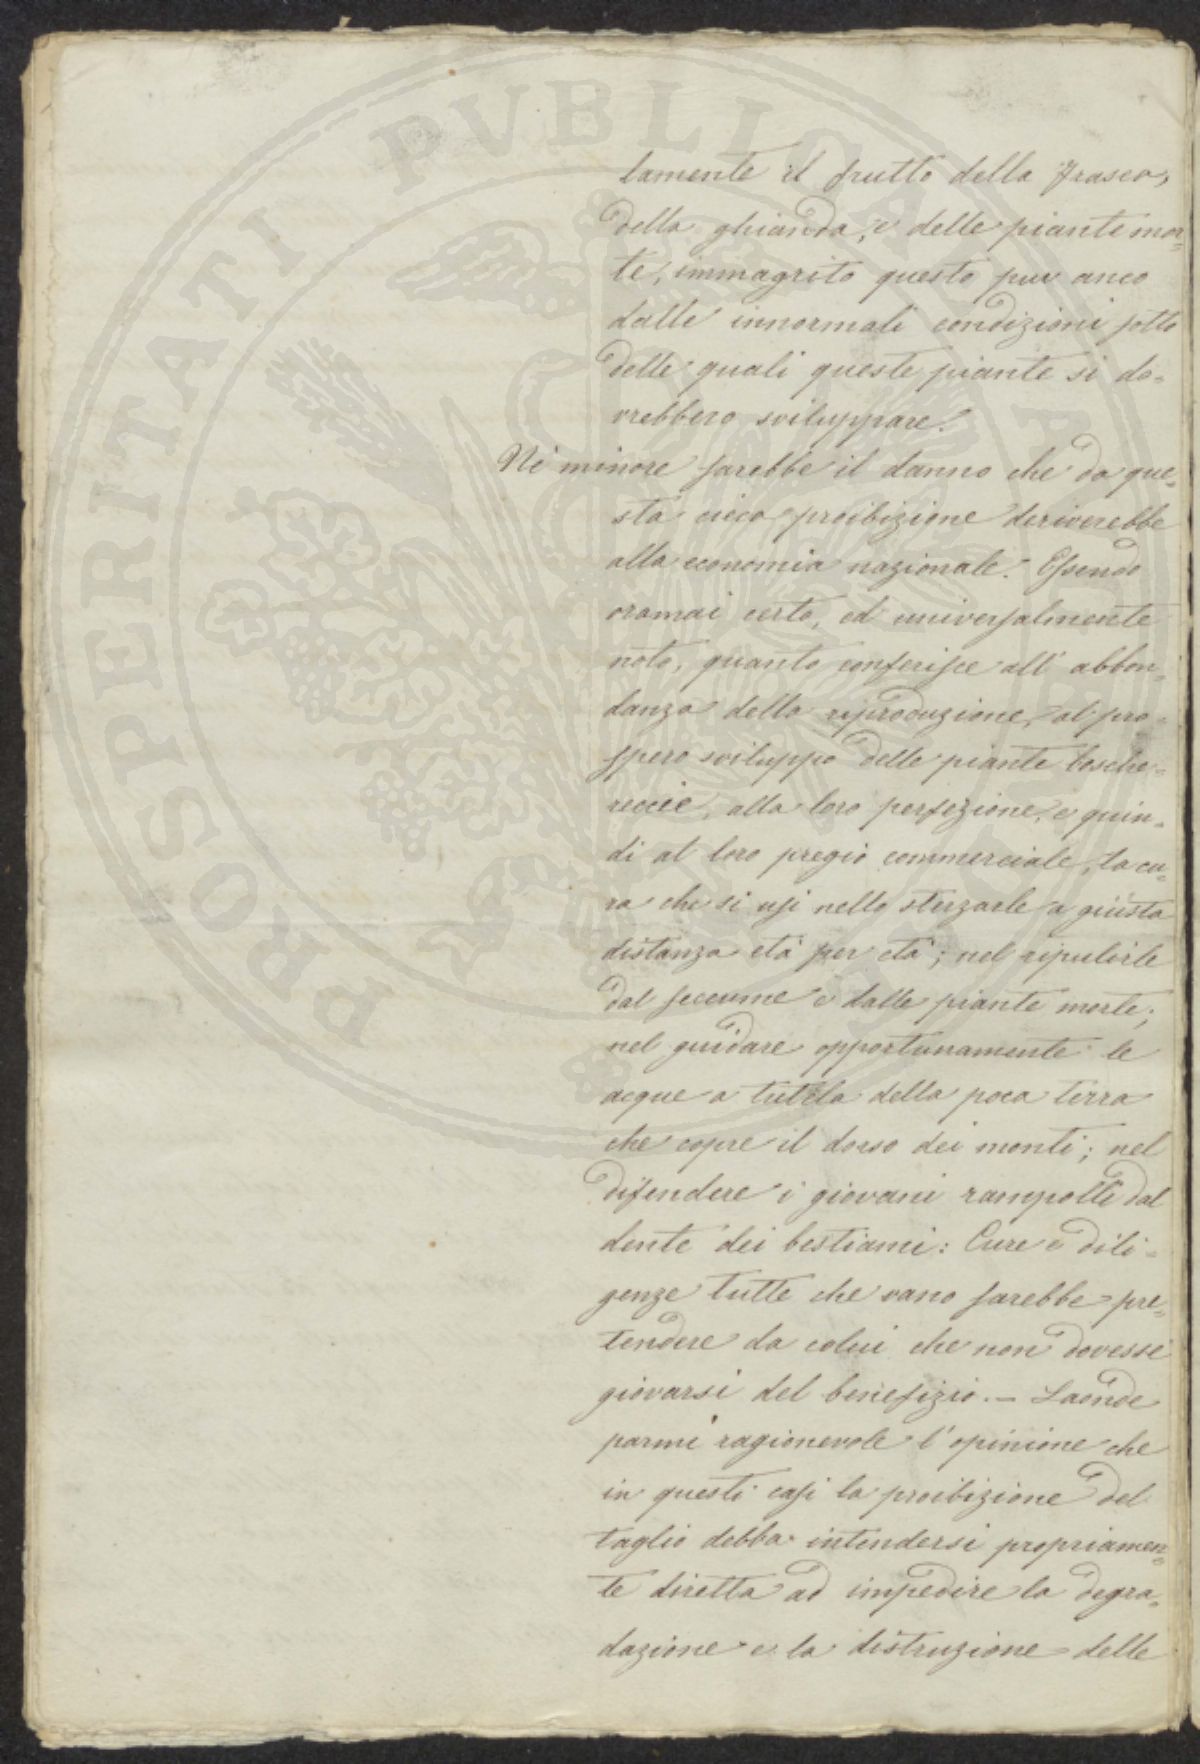 PROSPERITATI PVBLICAE
lamente il frutto della frasca,
della ghianda, e delle piante mor=
te, immagrito questo pur anco
dalle innormali condizioni sotto
delle quali queste piante si do=
vrebbero sviluppare.
Nè minore sarebbe il danno che da que=
sta cieca proibizione deriverebbe
alla economia nazionale. Essendo
oramai certo, ed universalmente
noto, quanto conferisce all'abbon=
danza della riproduzione, al pro=
spero sviluppo delle piante bosche=
reccie, alla loro perfezione, e quin=
di al loro pregio commerciale, la cu=
ra che si usi nello sterzarle a giusta
distanza età per età; nel ripulirle
dal seccume e dalle piante morte;
nel guidare opportunamente le
acque a tutela della poca terra
che copre il dorso dei monti; nel
difendere i giovani rampolli dal
dente dei bestiami: Cure e dili=
genze tutte che vano sarebbe pre=
tendere da colui che non dovesse
giovarsi del benefizio. — Laonde
parmi ragionevole l'opinione che
in questi casi la proibizione del
taglio debba intendersi propriamen=
te diretta ad impedire la degra=
dazione e la distruzione delle